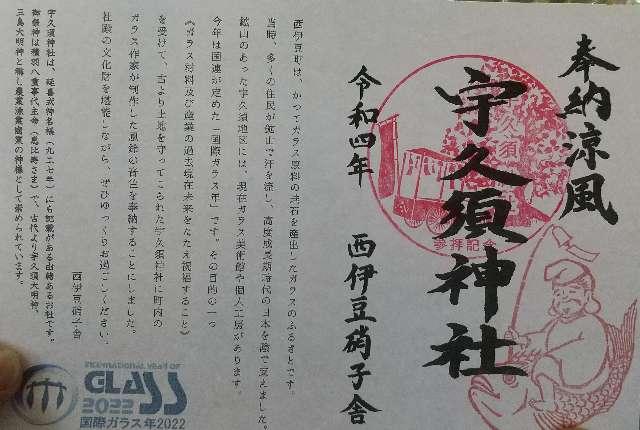 奉納涼風
宇久須神社
令和四年 西伊豆硝子舎
宇久須
参拝記念
西伊豆町は、かつてガラス原料の珪石を産出したガラスのふるさとです。
当時、多くの住民が鉱山で汗を流し、高度成長期時代の日本を陰で支えました。
鉱山のあった宇久須地区には、現在ガラス美術館や個人工房があります。
今年は国連が定めた「国際ガラス年」です。その目的の一つ
《ガラス材料及び産業の過去現在未来をたたえ祝福すること》
を受けて、古より土地を守ってこられた宇久須神社に町内の
ガラス作家が制作した風鈴の音色を奉納することにしました。
社殿の文化財を堪能しながら、ぜひゆっくりお過ごしください。
西伊豆硝子舎
宇久須神社は、延喜式神名帳(九二七年)にも記載がある由緒あるお社です。
御祭神は積羽八重事代主命(恵比寿さま)で、古代より宇久須大明神、
三島大明神と称し産業漁業商業の神様として崇められています。
INTERNATIONAL YEAR OF
GLASS
2022
国際ガラス年2022